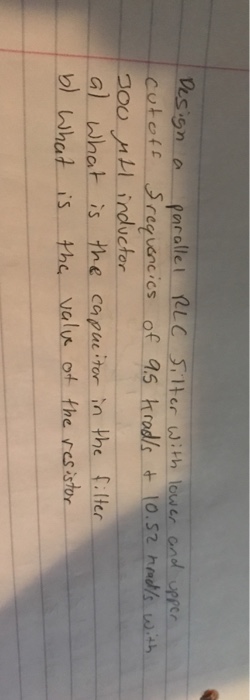 Design a parallel RLC filter with lower and upper
cutoff frequencies of 9.5 krad/s + 10.52 krad/s with
300 μH inductor
a) What is the capacitor in the filter
b) What is the value of the resistor